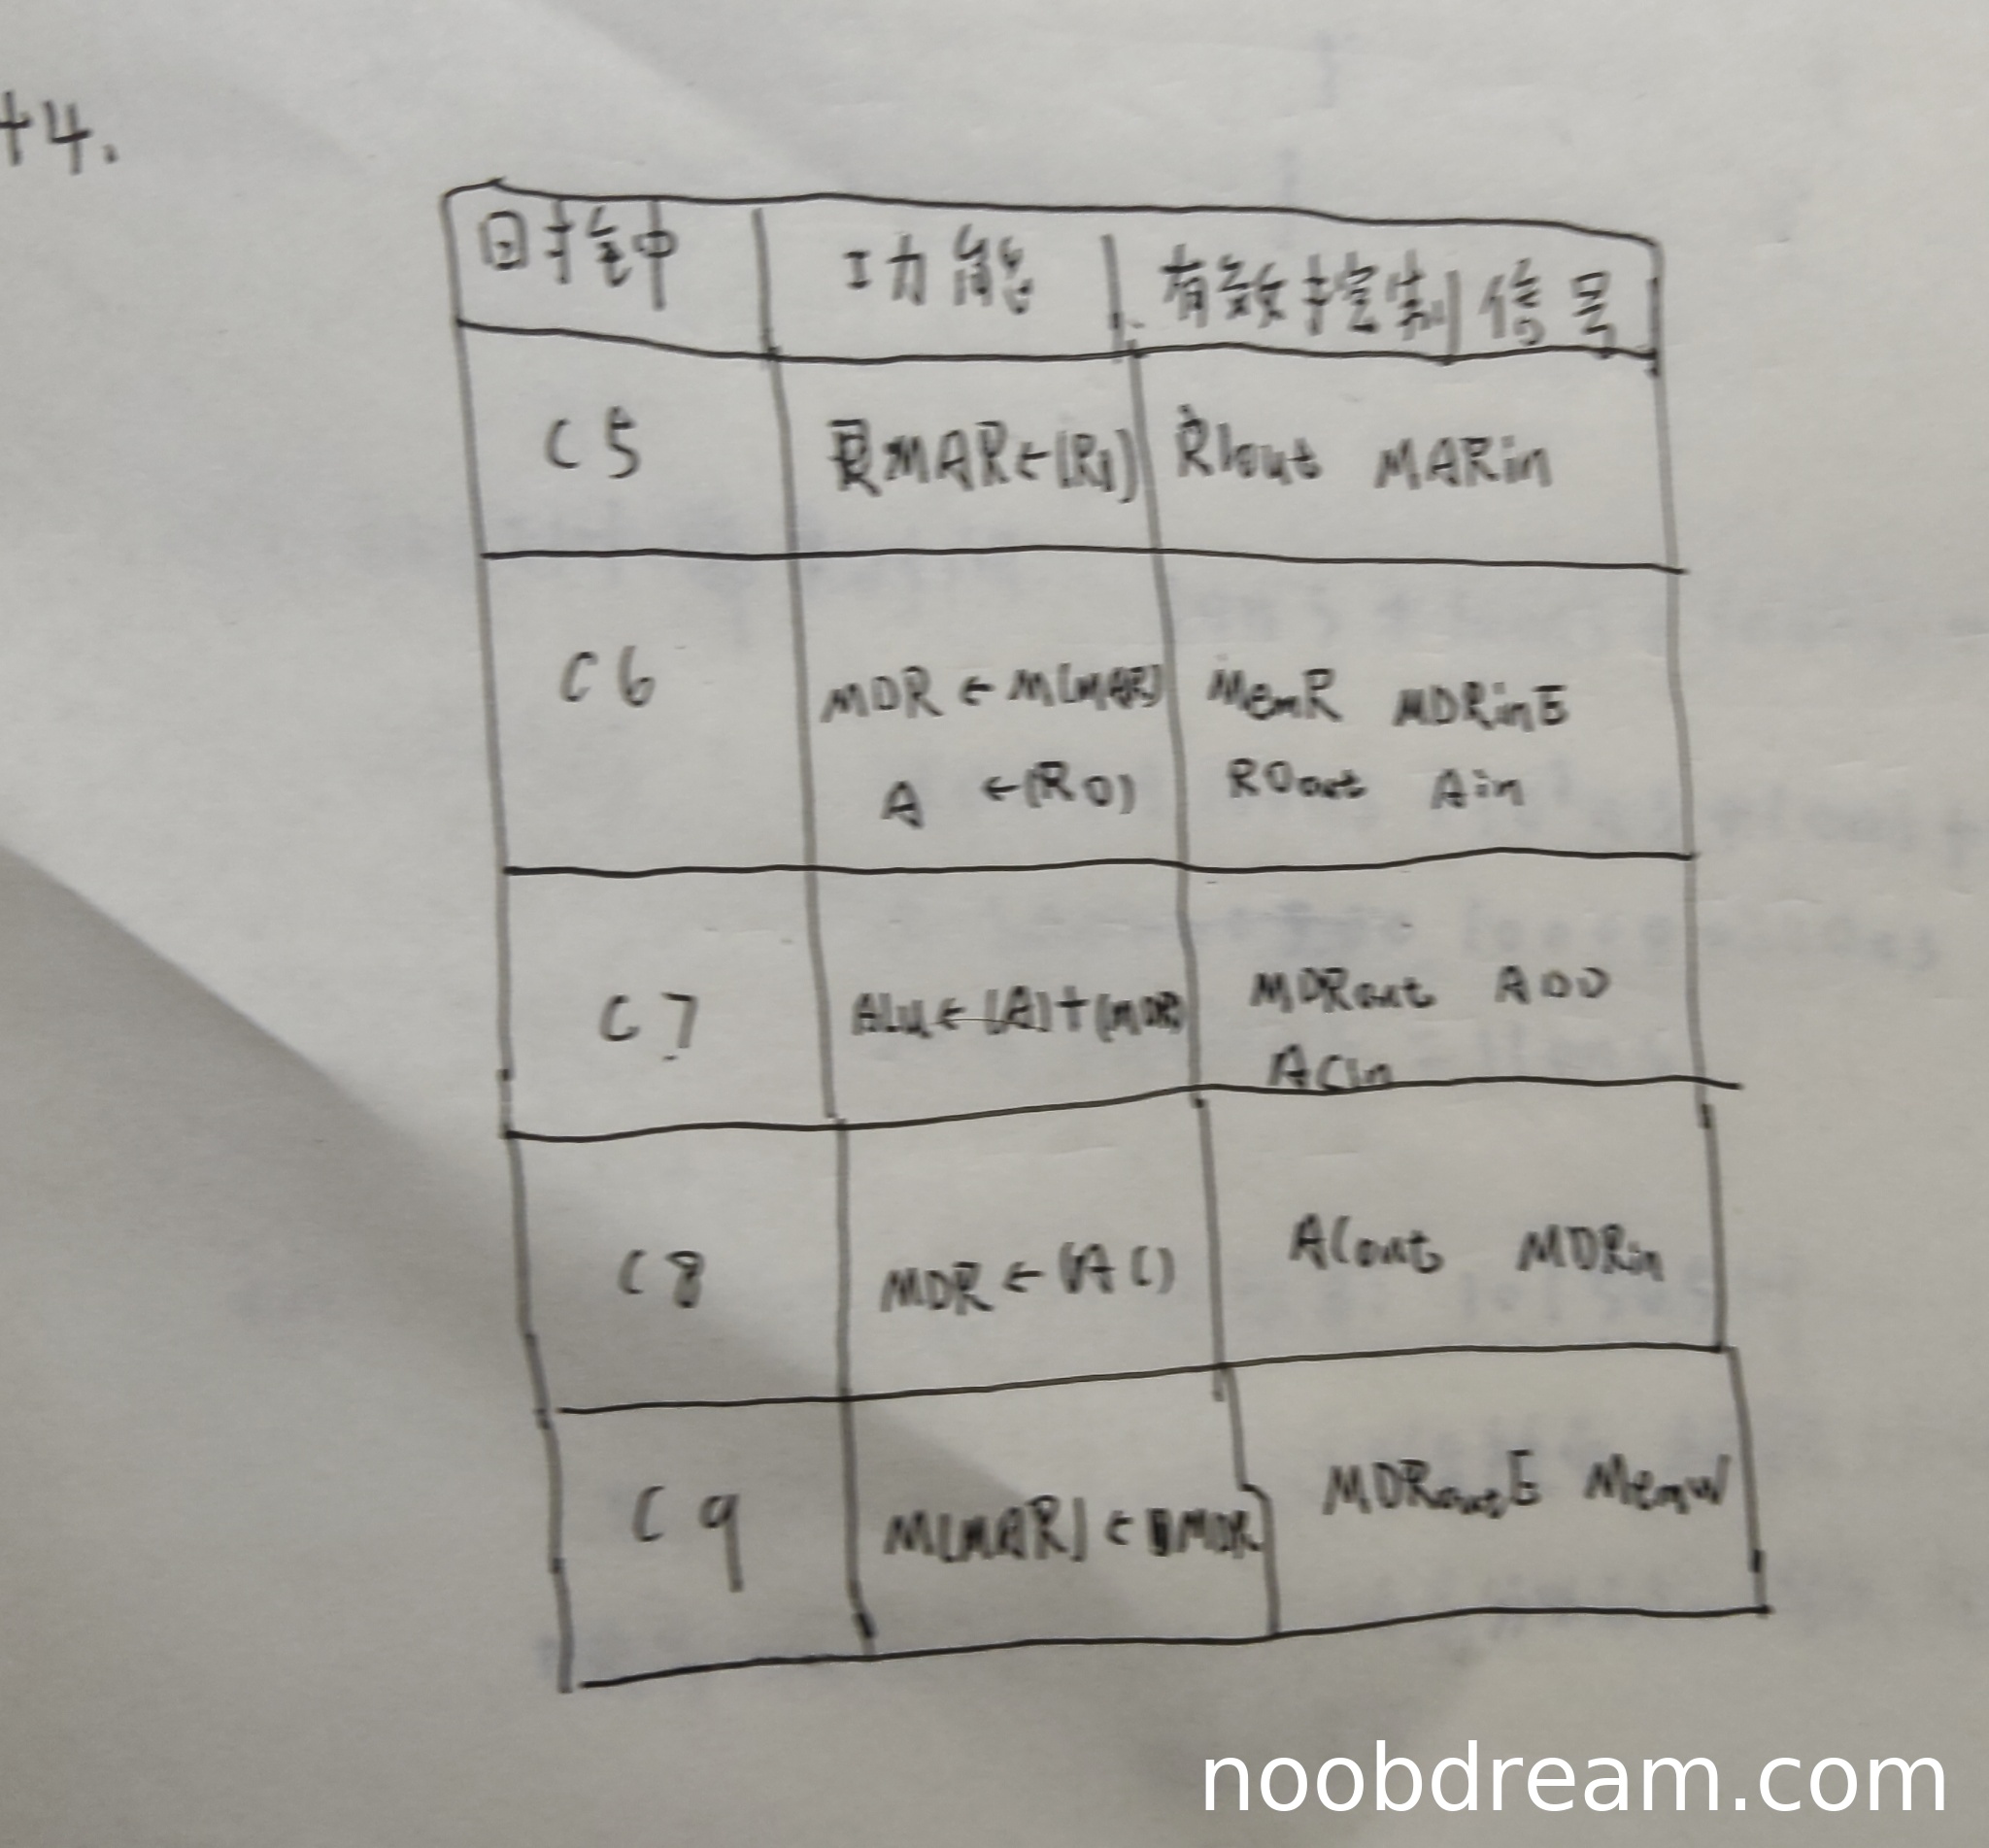 44.
时钟 功能 有效控制信号
C5 MAR←(R1) R1out MARin
C6 MDR←M(MAR) MemR MDRinE
A ←(R0) R0out Ain
C7 ALU←(A)+(MDR) MDRout ADD
ACin
C8 MDR←(AC) ACout MDRin
C9 M(MAR)←MDR MDRoutE MemW
noobdream.com